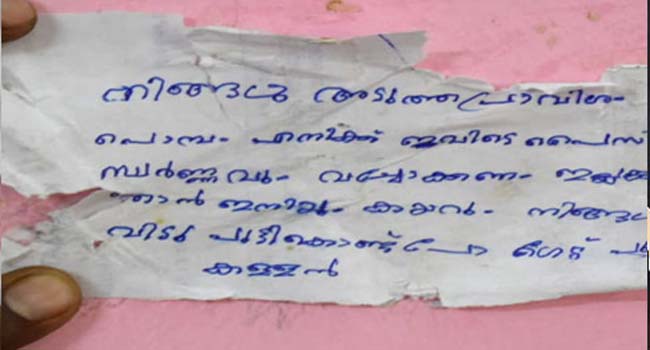 നിങ്ങൾ അടുത്തപ്രാവിശം
പൊമ്പം എനിക്ക് ഇവിടെ പൈസ
സ്വർണ്ണവും വയ്ക്കണം
ഞാൻ ഇനിയും കയറും നിങ്ങൾ
വിടു പുട്ടികൊണ്ട് പോ ഗേറ്റ് പൂ
കള്ളൻ